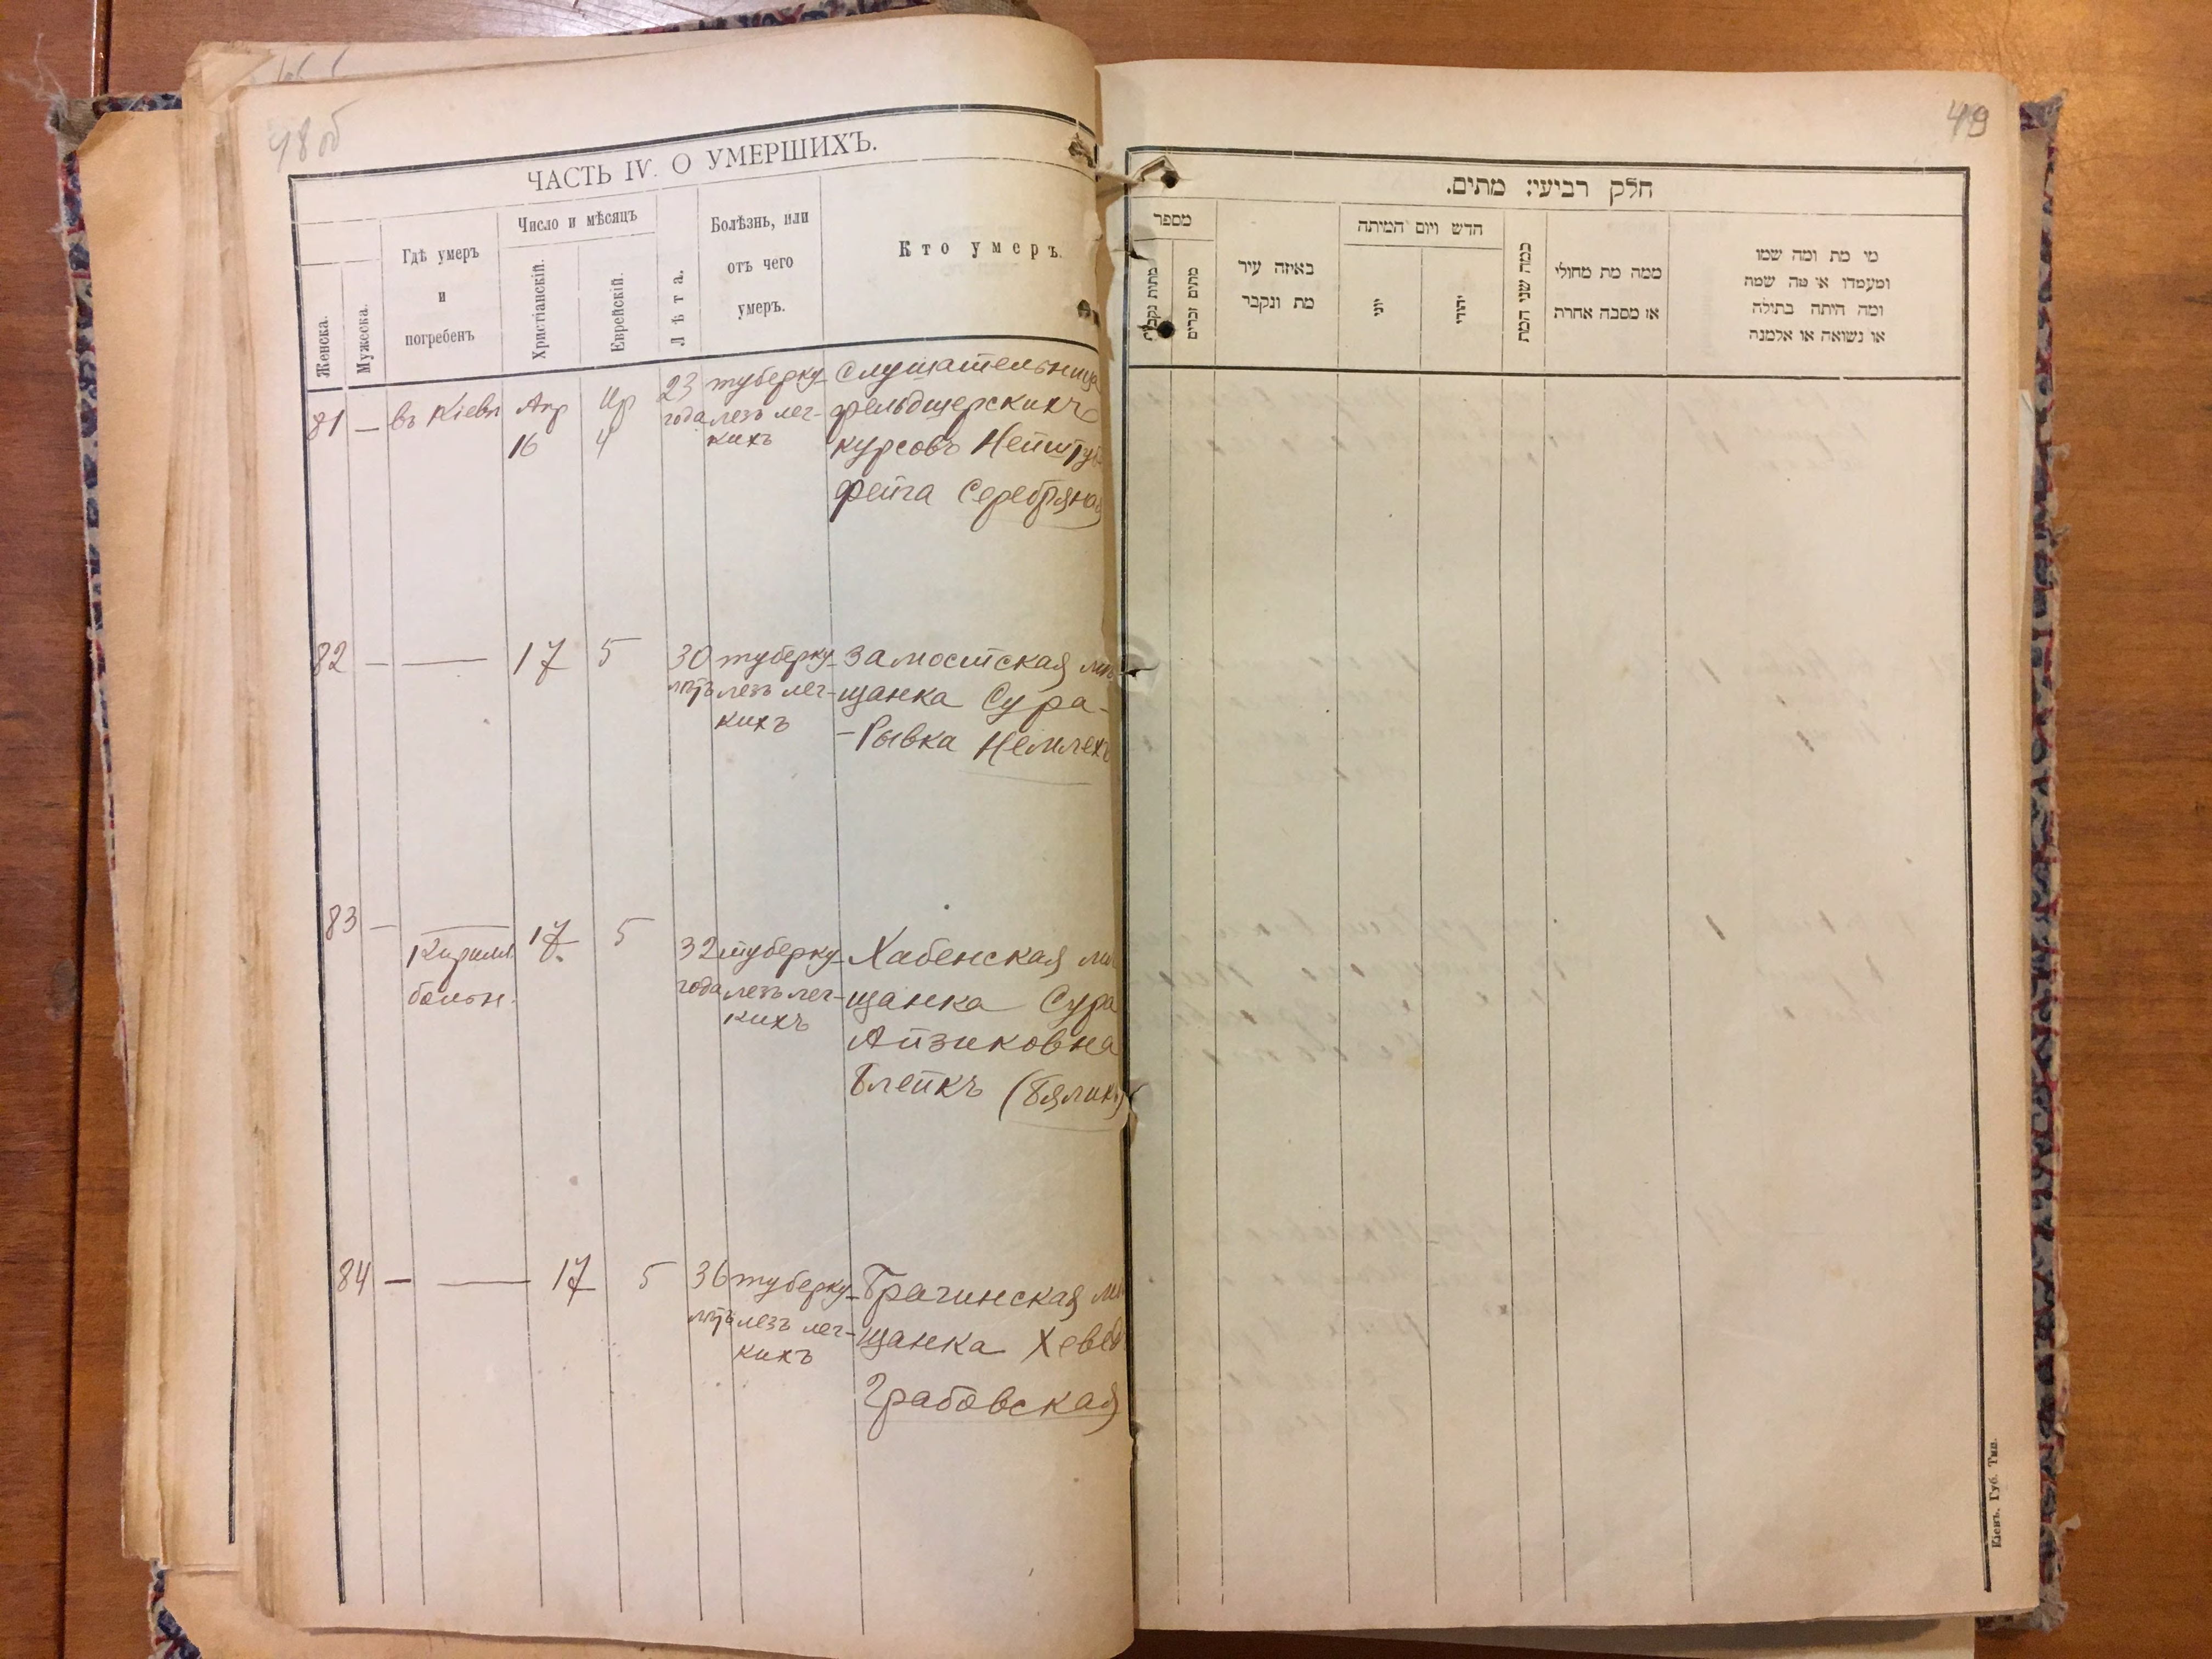 48 об
ЧАСТЬ IV. О УМЕРШИХЪ.
Женска.
Мужеска.
Гдѣ умеръ
и
погребенъ
Число и мѣсяцъ
Христіанскій.
Еврейскій.
Лѣта.
Болѣзнь, или
отъ чего
умеръ.
Кто умеръ.
81 — въ Кіевѣ Апр 16 Ир 4
23 года
туберку-
лезъ лег-
кихъ
Слушательница
фельдшерскихъ
курсовъ
Фейга Серебряная
82 — — 17 5
30 лѣтъ
туберку-
лезъ лег-
кихъ
Замостская мѣ-
щанка Сура-
-Рывка Немлехъ
83 — — 17 5
Кирилл.
больн.
32 года
туберку-
лезъ лег-
кихъ
Хабенская мѣ
щанка Сура
Айзиковна
Блейкъ (Бяликъ)
84 — — 17 5
36 лѣтъ
туберку-
лезъ лег-
кихъ
Брагинская мѣ
щанка
Грабовская
49
חלק רביעי: מתים.
מספר
מתות נקבות
מתים זכרים
באיזה עיר
מת ונקבר
חדש ויום המיתה
יוני
יהודי
כמה שני המת
ממה מת מחולי
או מסבה אחרת
מי מת ומה שמו
ומעמדו או מה שמה
ומה היתה בתולה
או נשואה או אלמנה
Кіевъ. Губ. Тип.